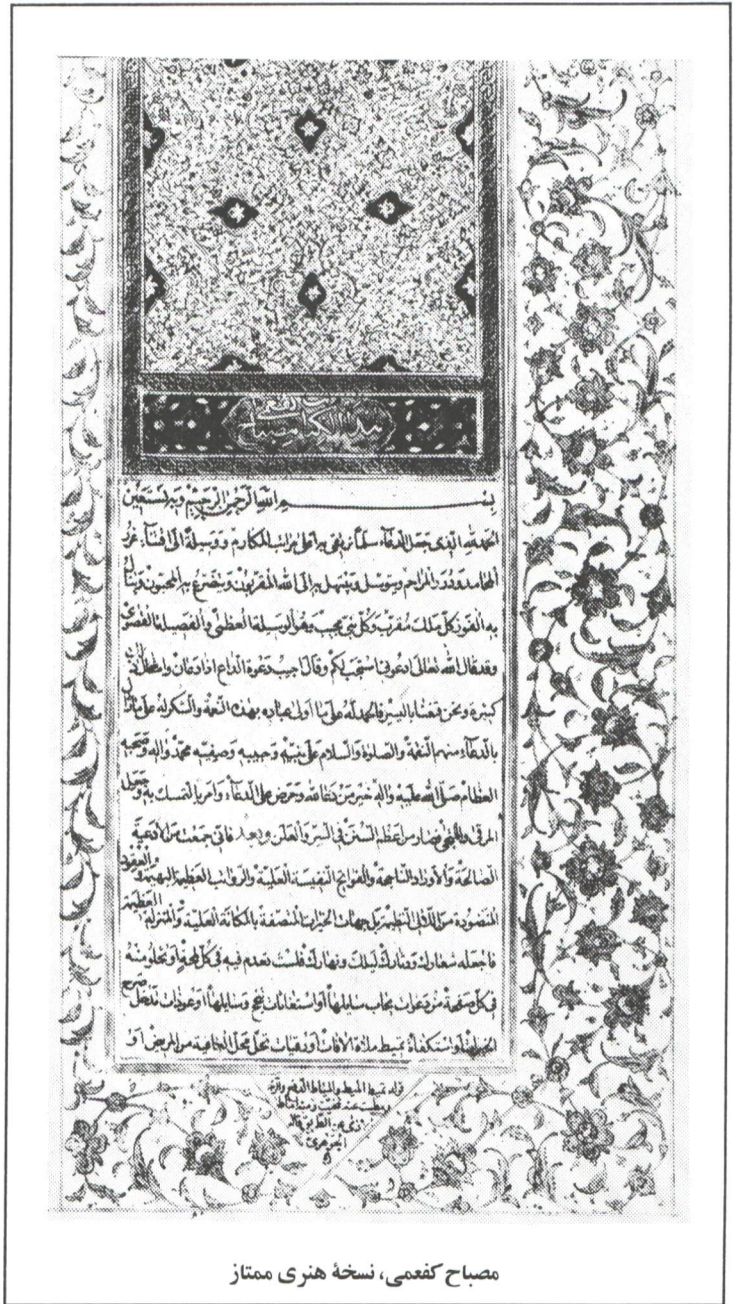 هذا الكتاب مصباح
بسم الله الرحمن الرحيم وبه نستعين
الحمد لله الذي جعل الدعاء سلما نرتقي به أعلى مراتب المكارم ووسيلة الى اقتناء غرر
المحامد ودرر المراحم ويتوسل ويبتهل به الى الله المقربون ويتضرع به المحبون وينال
به الفوز كل ملك مقرب وكل نبي وهو الوسيلة العظمى والفضيلة القصوى
وقد قال الله تعالى ادعوني استجب لكم وقال اجيب دعوة الداع اذا دعان
كثيرة ونحن قنعنا باليسير فالحمد لله على ما اولى عباده بهذه النعمة والشكر له على
بالدعاء منهم النقمة والصلوة والسلام على نبيه وحبيبه وصفيه محمد واله وصحبه
العظام صلى الله عليه واله خير من دعا لله وحرض على الدعاء وامر بالتمسك به وجعل
من اعظم السنن في السر والعلن وبعد فاني جمعت من الادعية
الصالحة والاوراد الناجحة والعزائم النفيسة العلية والعظيمة البهية والعقود
المنضودة من اللآلي جهات الخيرات المتصفة بالمكانة العلية والمنزلة العظيمة
فاجعله شعارك ودثارك ليلك ونهارك فلست تعدم فيه في كل لمحة او تخلو منه
في كل صفحة من دعوات يجاب سايلها او استغاثات ينجح وسايلها او عوذات
او استكفاء يميط ملاءة الآفات او رقيات تحل محل العافية من المريض او
قوله يميط
عن الطريق قاله
الجوهري
مصباح کفعمی، نسخهٔ هنری ممتاز